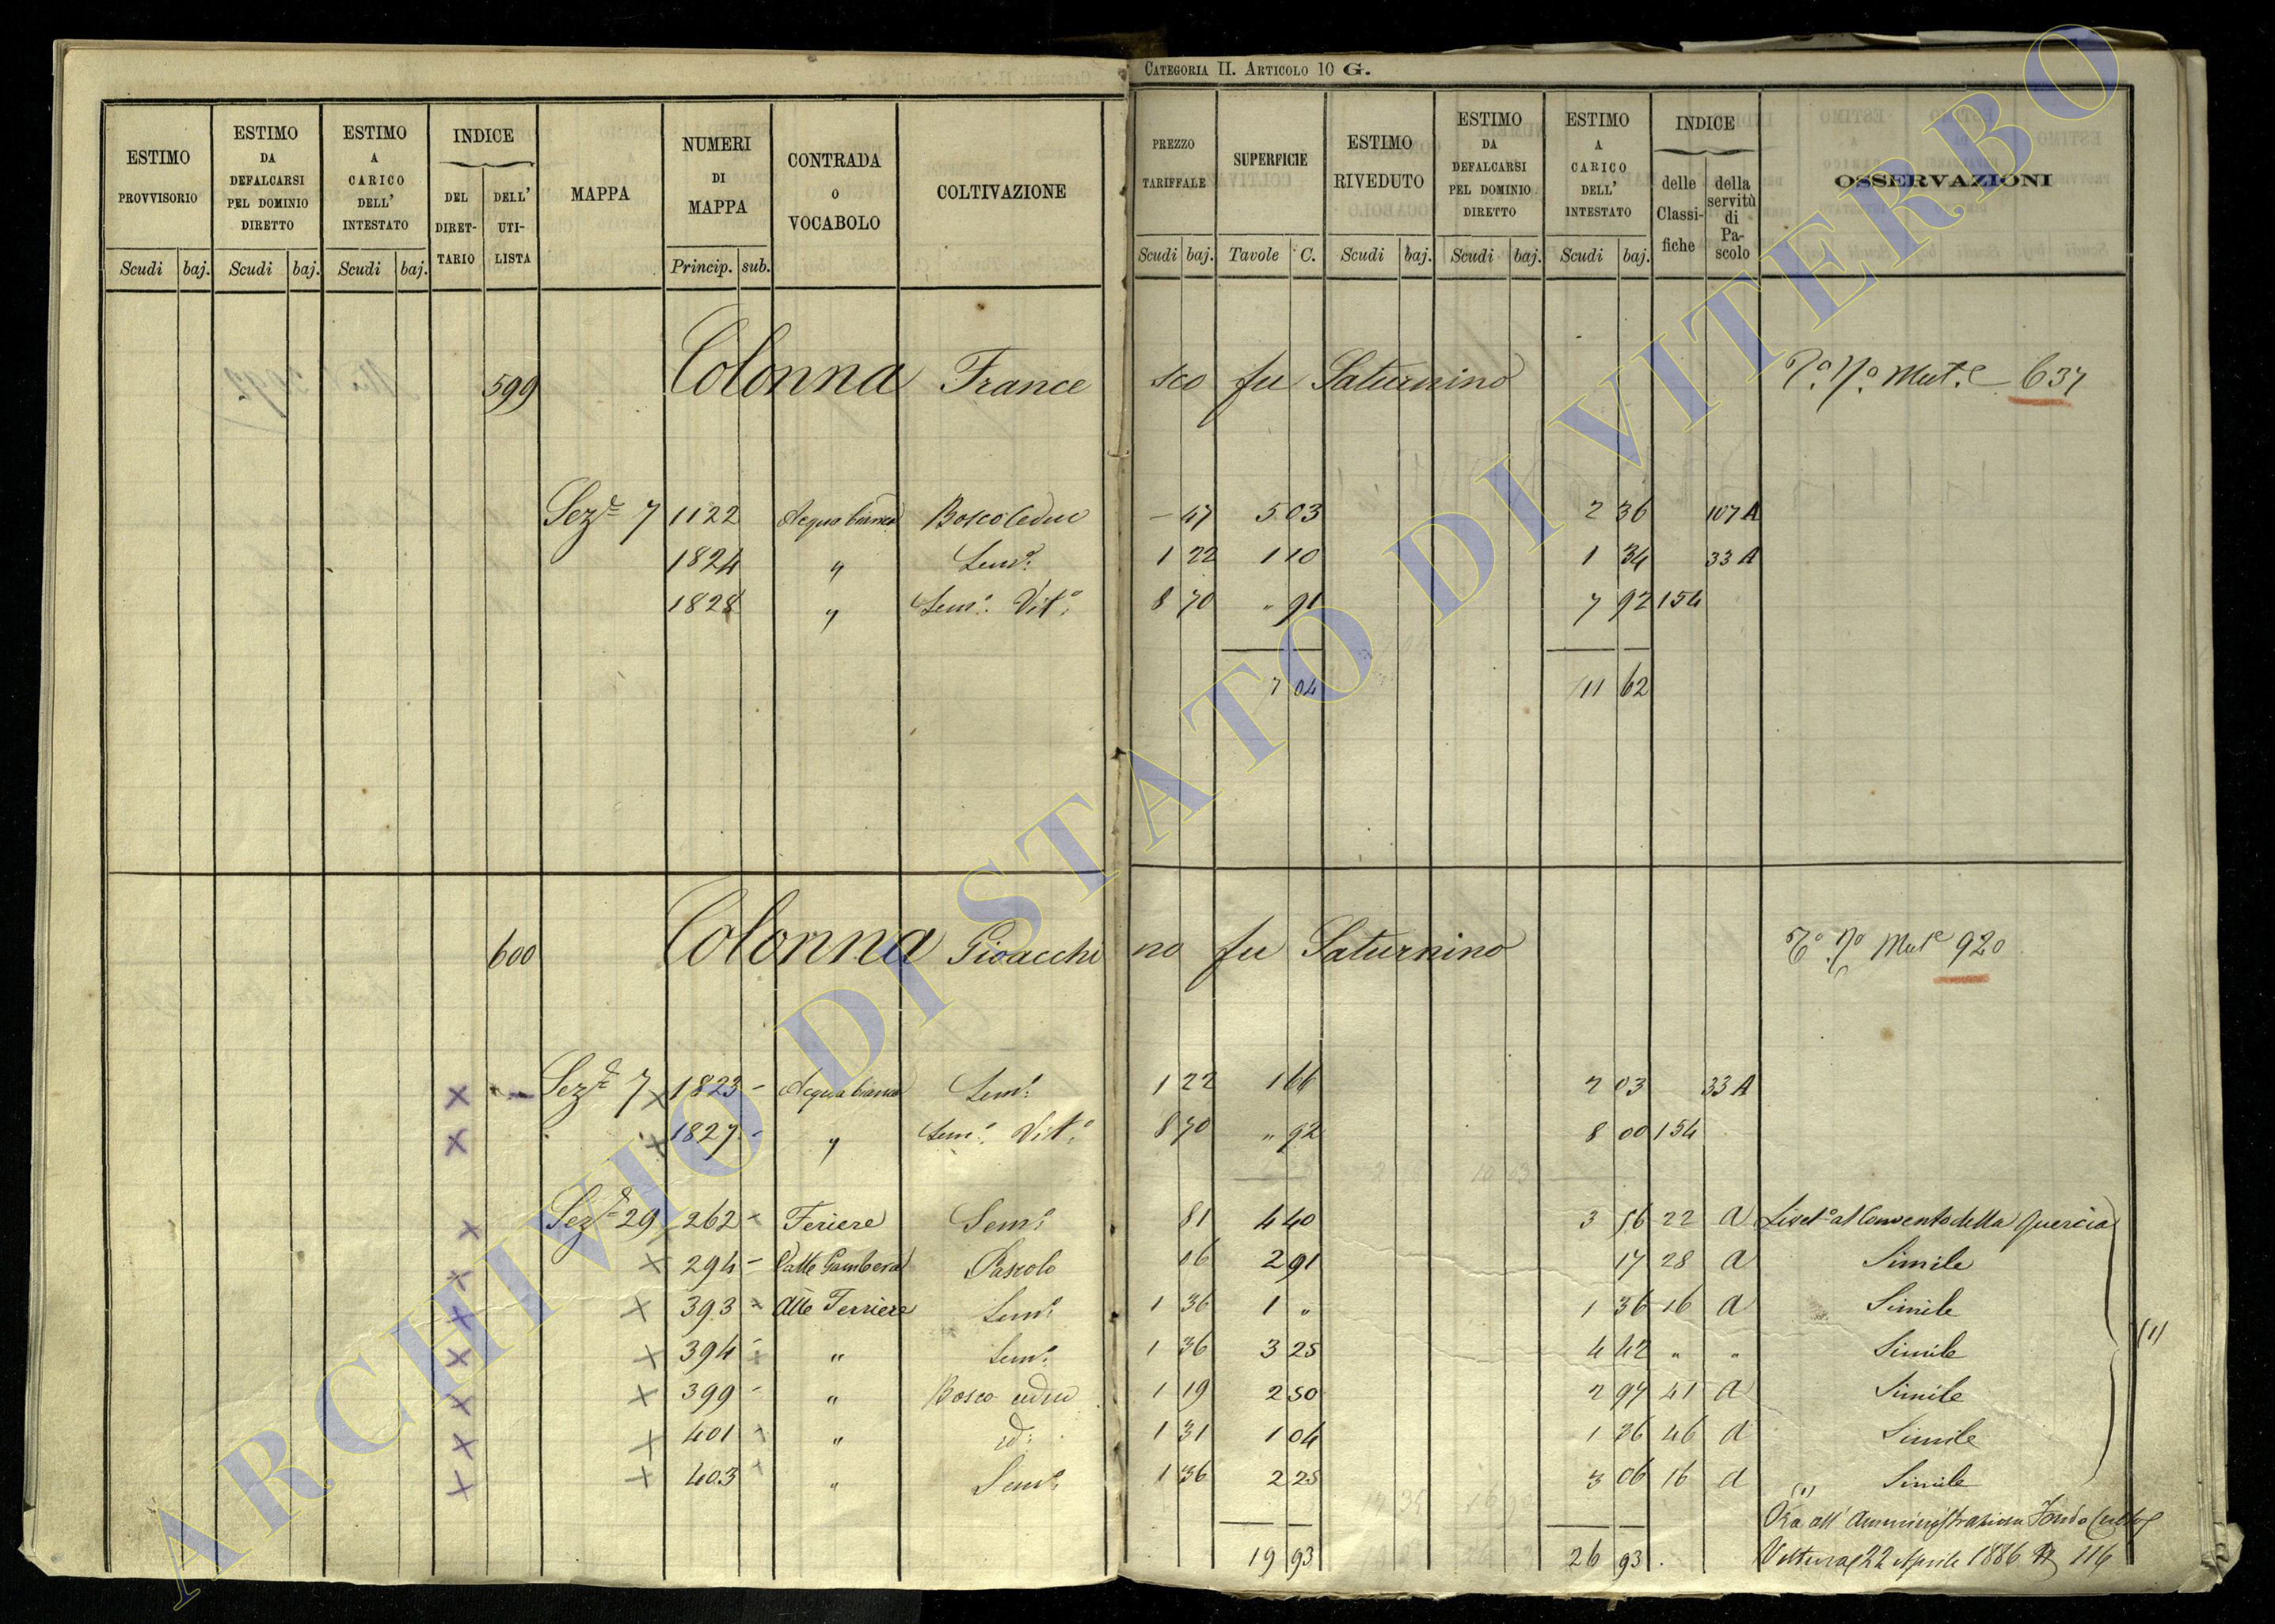 CATEGORIA II. ARTICOLO 10 G.
ESTIMO PROVVISORIO Scudi baj.
ESTIMO DA DEFALCARSI PEL DOMINIO DIRETTO Scudi baj.
ESTIMO A CARICO DELL' INTESTATO Scudi baj.
INDICE DEL DIRET-TARIO DELL' UTI-LISTA
MAPPA
NUMERI DI MAPPA Princip. sub.
CONTRADA o VOCABOLO
COLTIVAZIONE
PREZZO TARIFFALE Scudi baj.
SUPERFICIE Tavole C.
ESTIMO RIVEDUTO Scudi baj.
ESTIMO DA DEFALCARSI PEL DOMINIO DIRETTO Scudi baj.
ESTIMO A CARICO DELL' INTESTATO Scudi baj.
INDICE delle Classi-fiche della servitù di Pa-scolo
OSSERVAZIONI
599 Colonna France sco fu Saturnino Mut.e 637
Sez.e 7 1122 Acqua bianca Bosco Ceduo – 47 5 03 2 36 107 A
1824 " Sem.o 1 22 1 10 1 34 33 A
1828 " Sem.o Vit.o 8 70 " 91 7 92 154
7 04 11 62
600 Colonna Gioacchi no fu Saturnino Mut.e 920
Sez.e 7 1823 – Acqua bianca Sem.o 1 22 1 66 2 03 33 A
1827 – " Sem.o Vit.o 8 70 " 92 8 00 154
Sez.e 29 262 Feriere Sem.o 81 4 40 3 56 22 a Livel.o al Convento della Quercia
294 – Valle Gambera Pascolo 06 2 91 17 28 a Simile
393 Alle Ferriere Sem.o 1 36 1 " 1 36 16 a Simile
394 " Sem.o 1 36 3 25 4 42 " " Simile (1)
399 – " Bosco ceduo 1 19 2 50 2 97 41 a Simile
401 " id: 1 31 1 04 1 36 46 a Simile
403 " Sem.o 1 36 2 25 3 06 16 a Simile
(1) Ora all' Amministrazione Fondo Culto
19 93 26 93 Voltura 22 Aprile 1886 N 116
ARCHIVIO DI STATO DI VITERBO